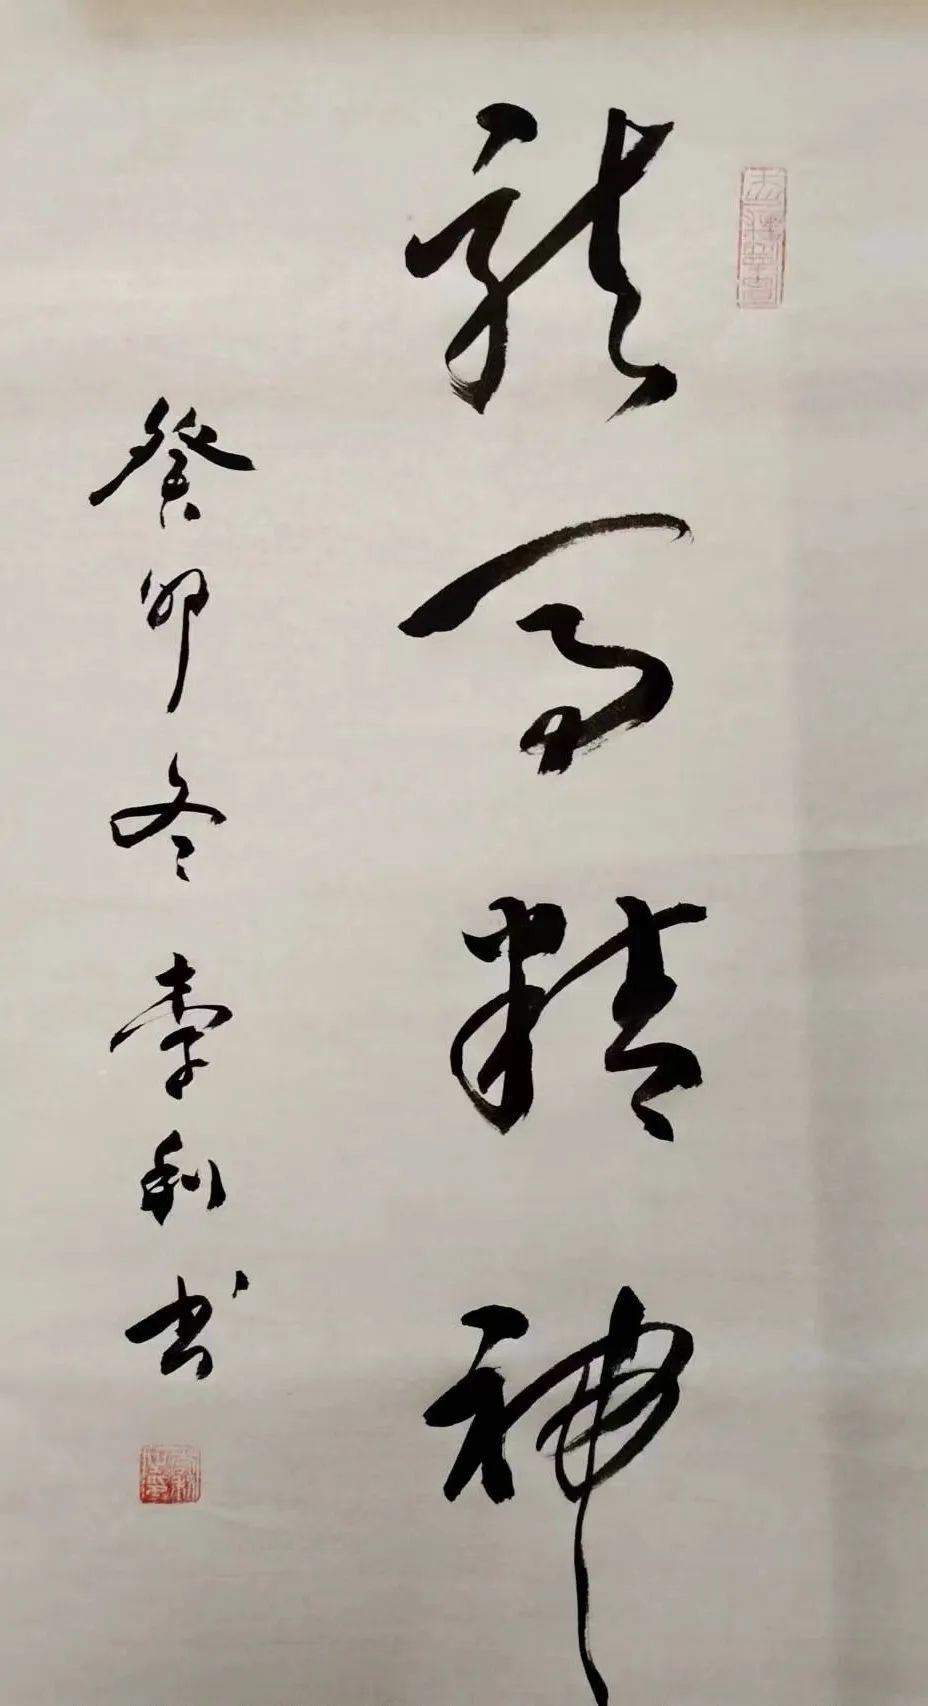 龍馬精神
癸卯冬李利书